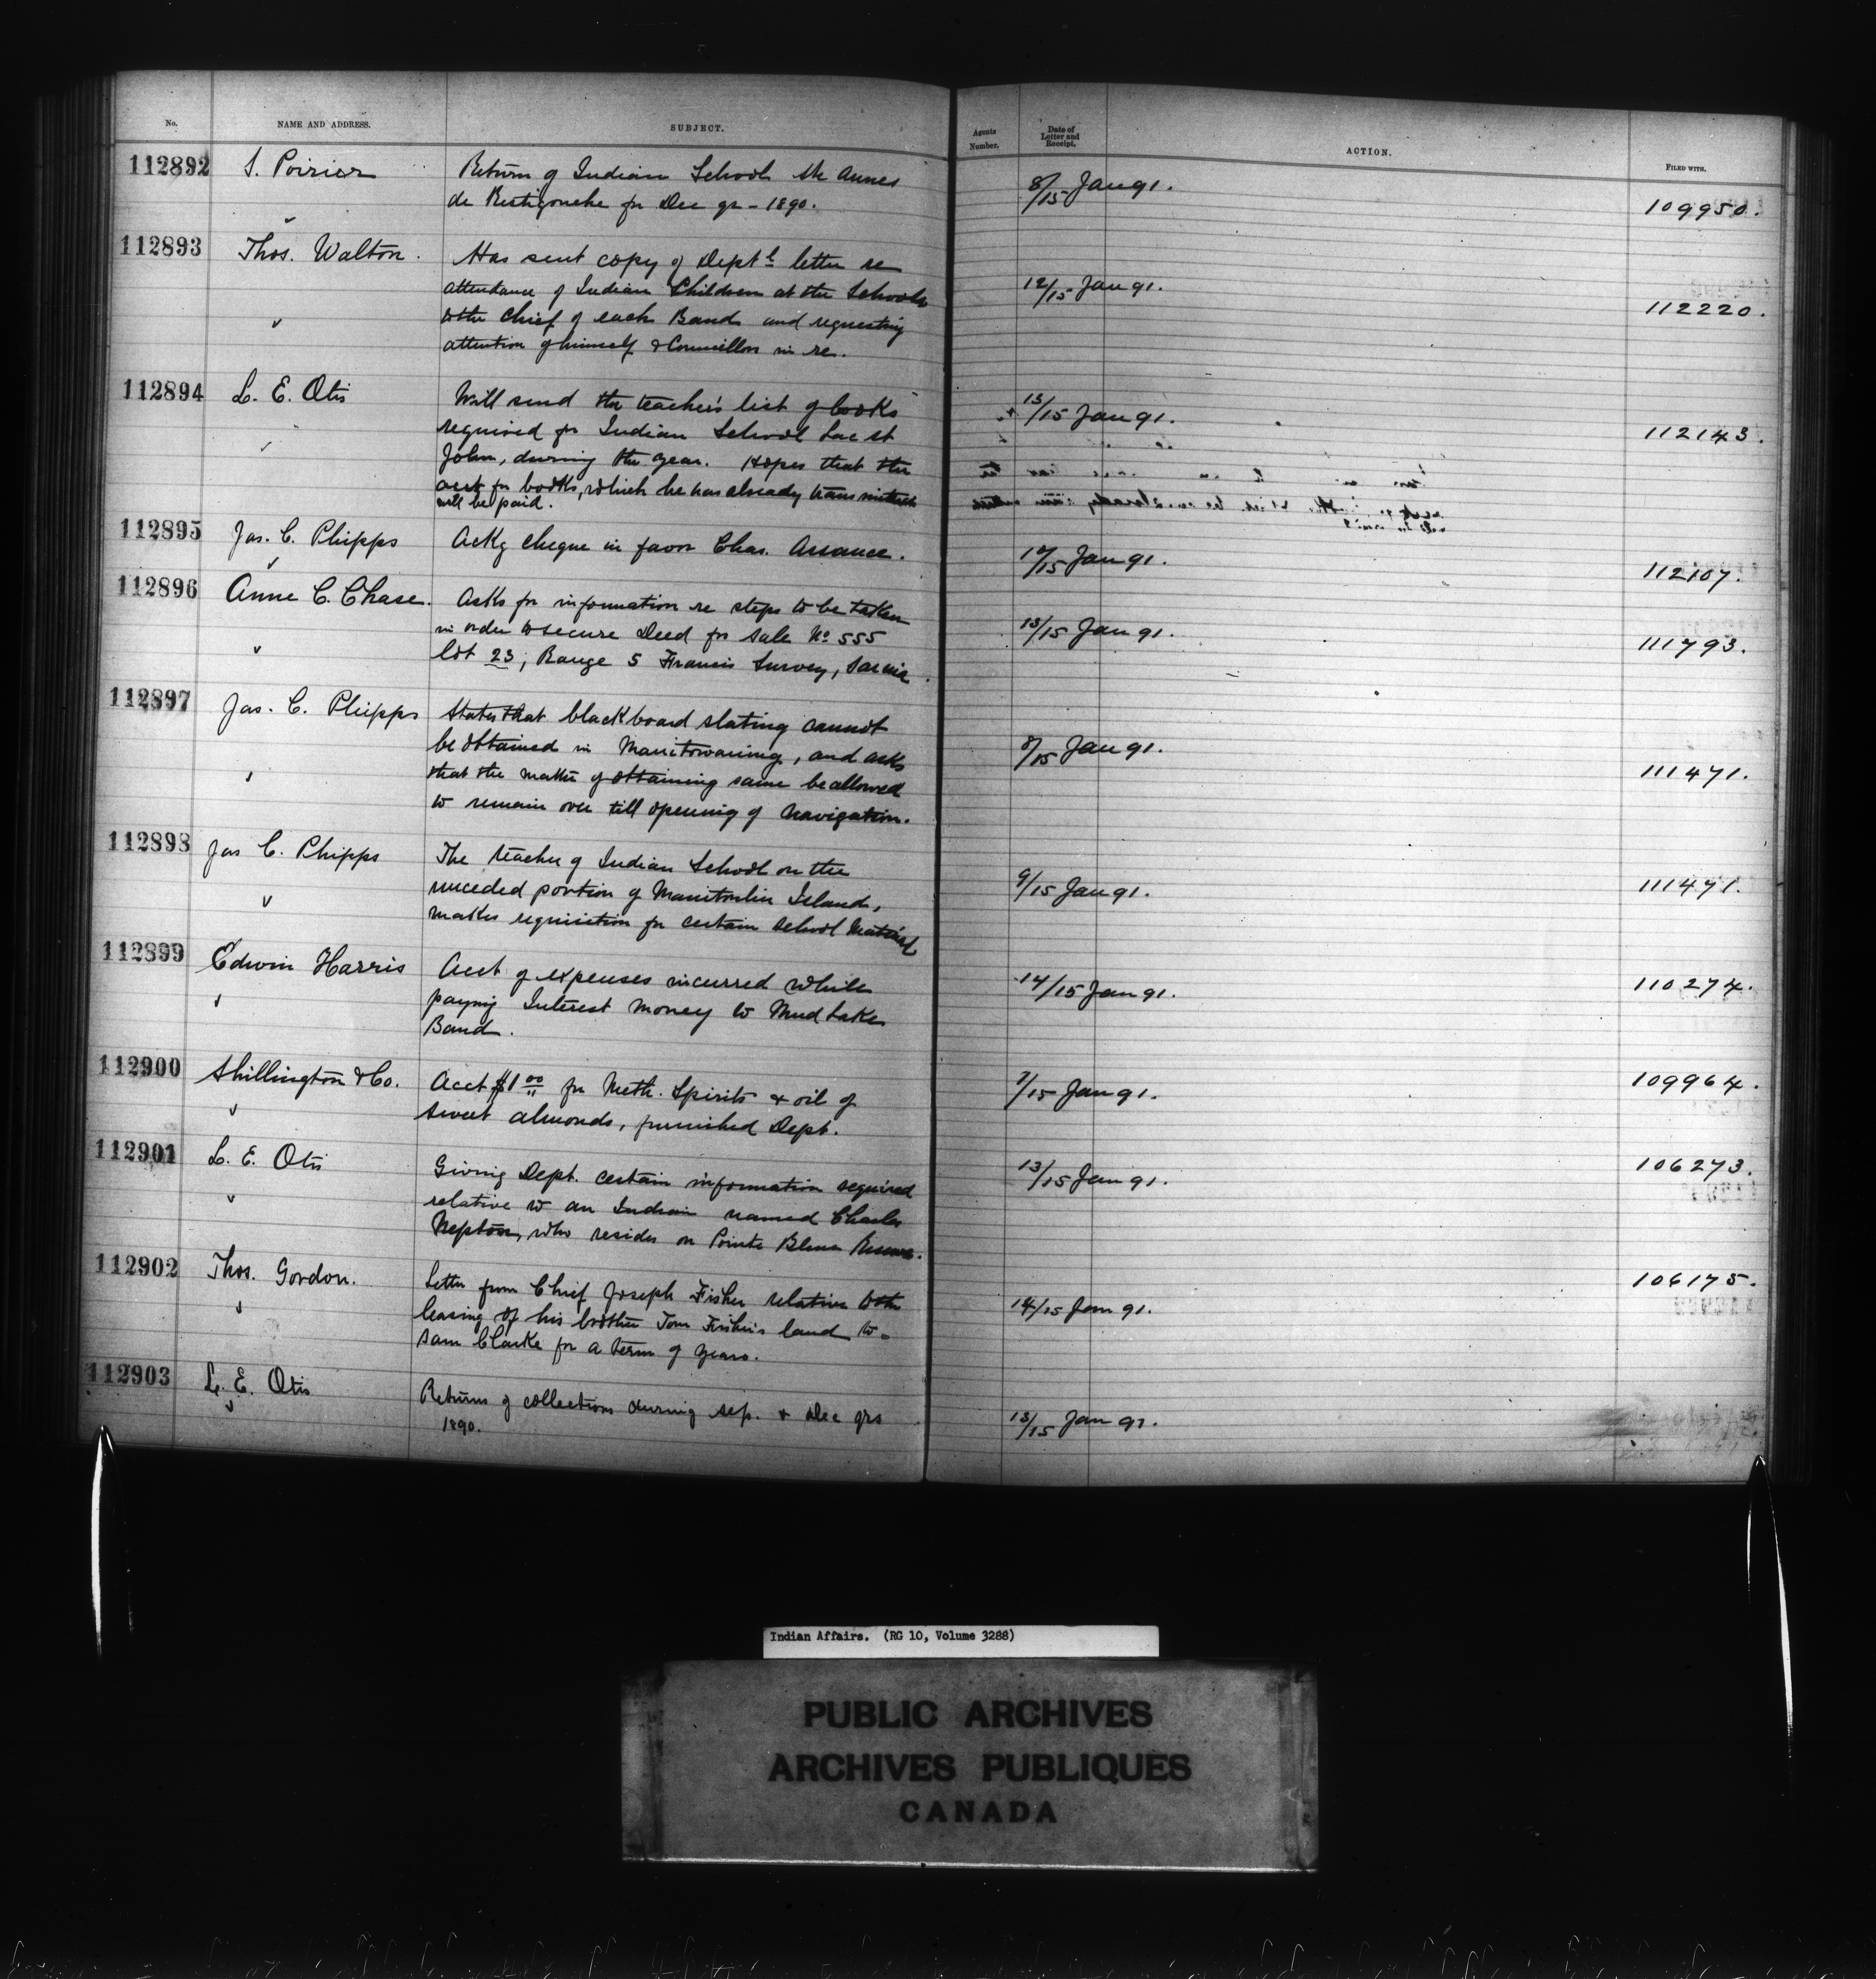 No.
NAME AND ADDRESS.
SUBJECT.
Agents Number.
Date of Letter and Receipt.
ACTION.
FILED WITH.
112892 S. Poirier Return of Indian School Ste Annes
de Restigouche for Dec qr - 1890.
8/15 Jan 91. 109950.
112893 Thos. Walton. Has sent copy of Deptl letter re
attendance of Indian Children at the Schools
to the Chief of each Band and requesting
attention of himself & Councillors in re.
12/15 Jan 91. 112220.
112894 L. E. Otis Will send the teacher's list of books
required for Indian School Lac St
John, during the year. Hopes that the
acct for books, which he has already transmitted
will be paid.
13/15 Jan 91. 112143.
112895 Jas. C. Phipps Ackg cheque in favor Chas. Assance.
12/15 Jan 91. 112107.
112896 Anne C. Chase. Asks for information re steps to be taken
in order to secure Deed for Sale No 555
lot 23, Range 5 Francis Survey, Sarnia.
13/15 Jan 91. 111793.
112897 Jas. C. Phipps States that blackboard slating cannot
be obtained in Manitowaning, and asks
that the matter of obtaining same be allowed
to remain over till opening of navigation.
8/15 Jan 91. 111471.
112898 Jas C. Phipps The teacher of Indian School on the
unceded portion of Manitoulin Island,
makes requisition for certain school material
9/15 Jan 91. 111471.
112899 Edwin Harris Acct of expenses incurred while
paying Interest money to Mud Lake
Band.
14/15 Jan 91. 110274.
112900 Shillington & Co. Acct $1 00 for Meth. Spirits & oil of
sweet almonds, furnished Dept.
7/15 Jan 91. 109964.
112901 L. E. Otis Giving Dept. certain information required
relative to an Indian named Charles
Nepton, who resides on Pointe Bleue Reserve.
13/15 Jan 91. 106273.
112902 Thos. Gordon. Letter from Chief Joseph Fisher relative to the
leasing of his brother Tom Fisher's land to
Sam Clarke for a term of years.
14/15 Jan 91. 106175.
112903 L. E. Otis Returns of collections during Sep. & Dec qrs
1890.
13/15 Jan 91.
Indian Affairs. (RG 10, Volume 3288)
PUBLIC ARCHIVES
ARCHIVES PUBLIQUES
CANADA